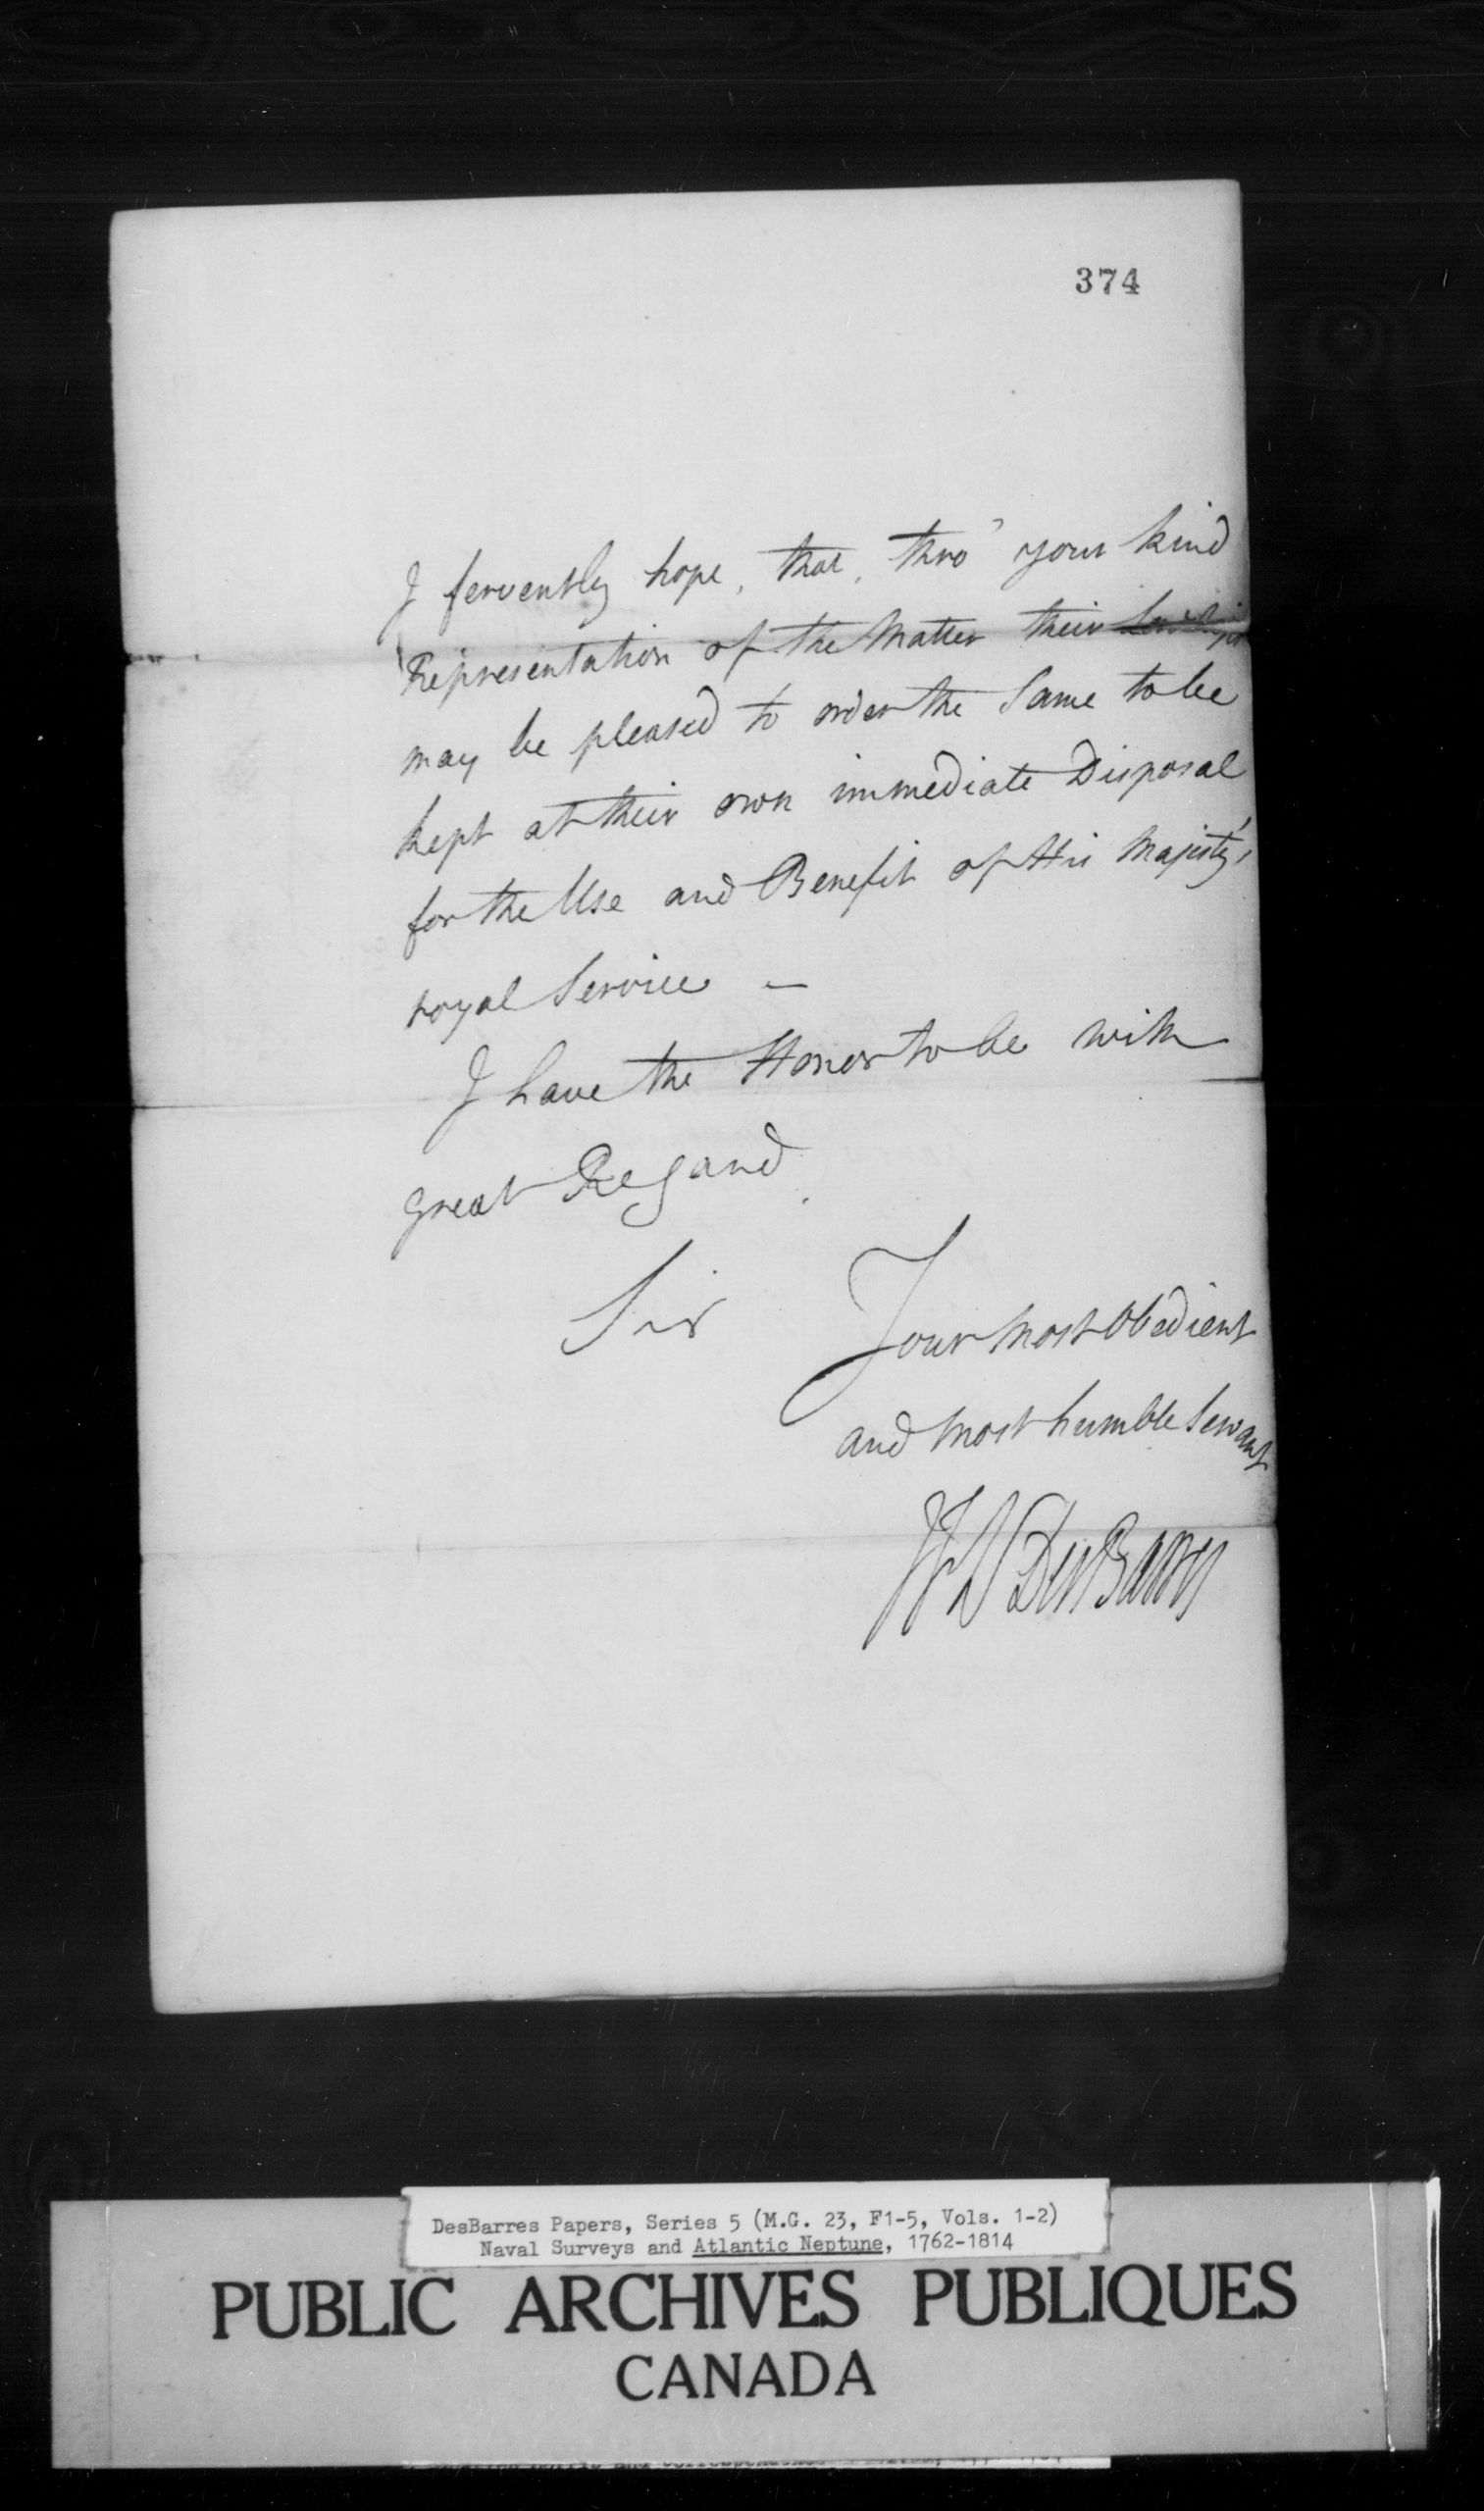 374
I fervently hope, that, thro' your kind
Representation of the Matter their Lordships
may be pleased to order the Same to be
kept at their own immediate Disposal
for the Use and Benefit of His Majesty's
royal Service —
I have the Honor to be with
great Regard
Sir
Your most Obedient
and most humble Servant
JFW DesBarres
DesBarres Papers, Series 5 (M.G. 23, F1-5, Vols. 1-2)
Naval Surveys and Atlantic Neptune, 1762-1814
PUBLIC ARCHIVES PUBLIQUES
CANADA